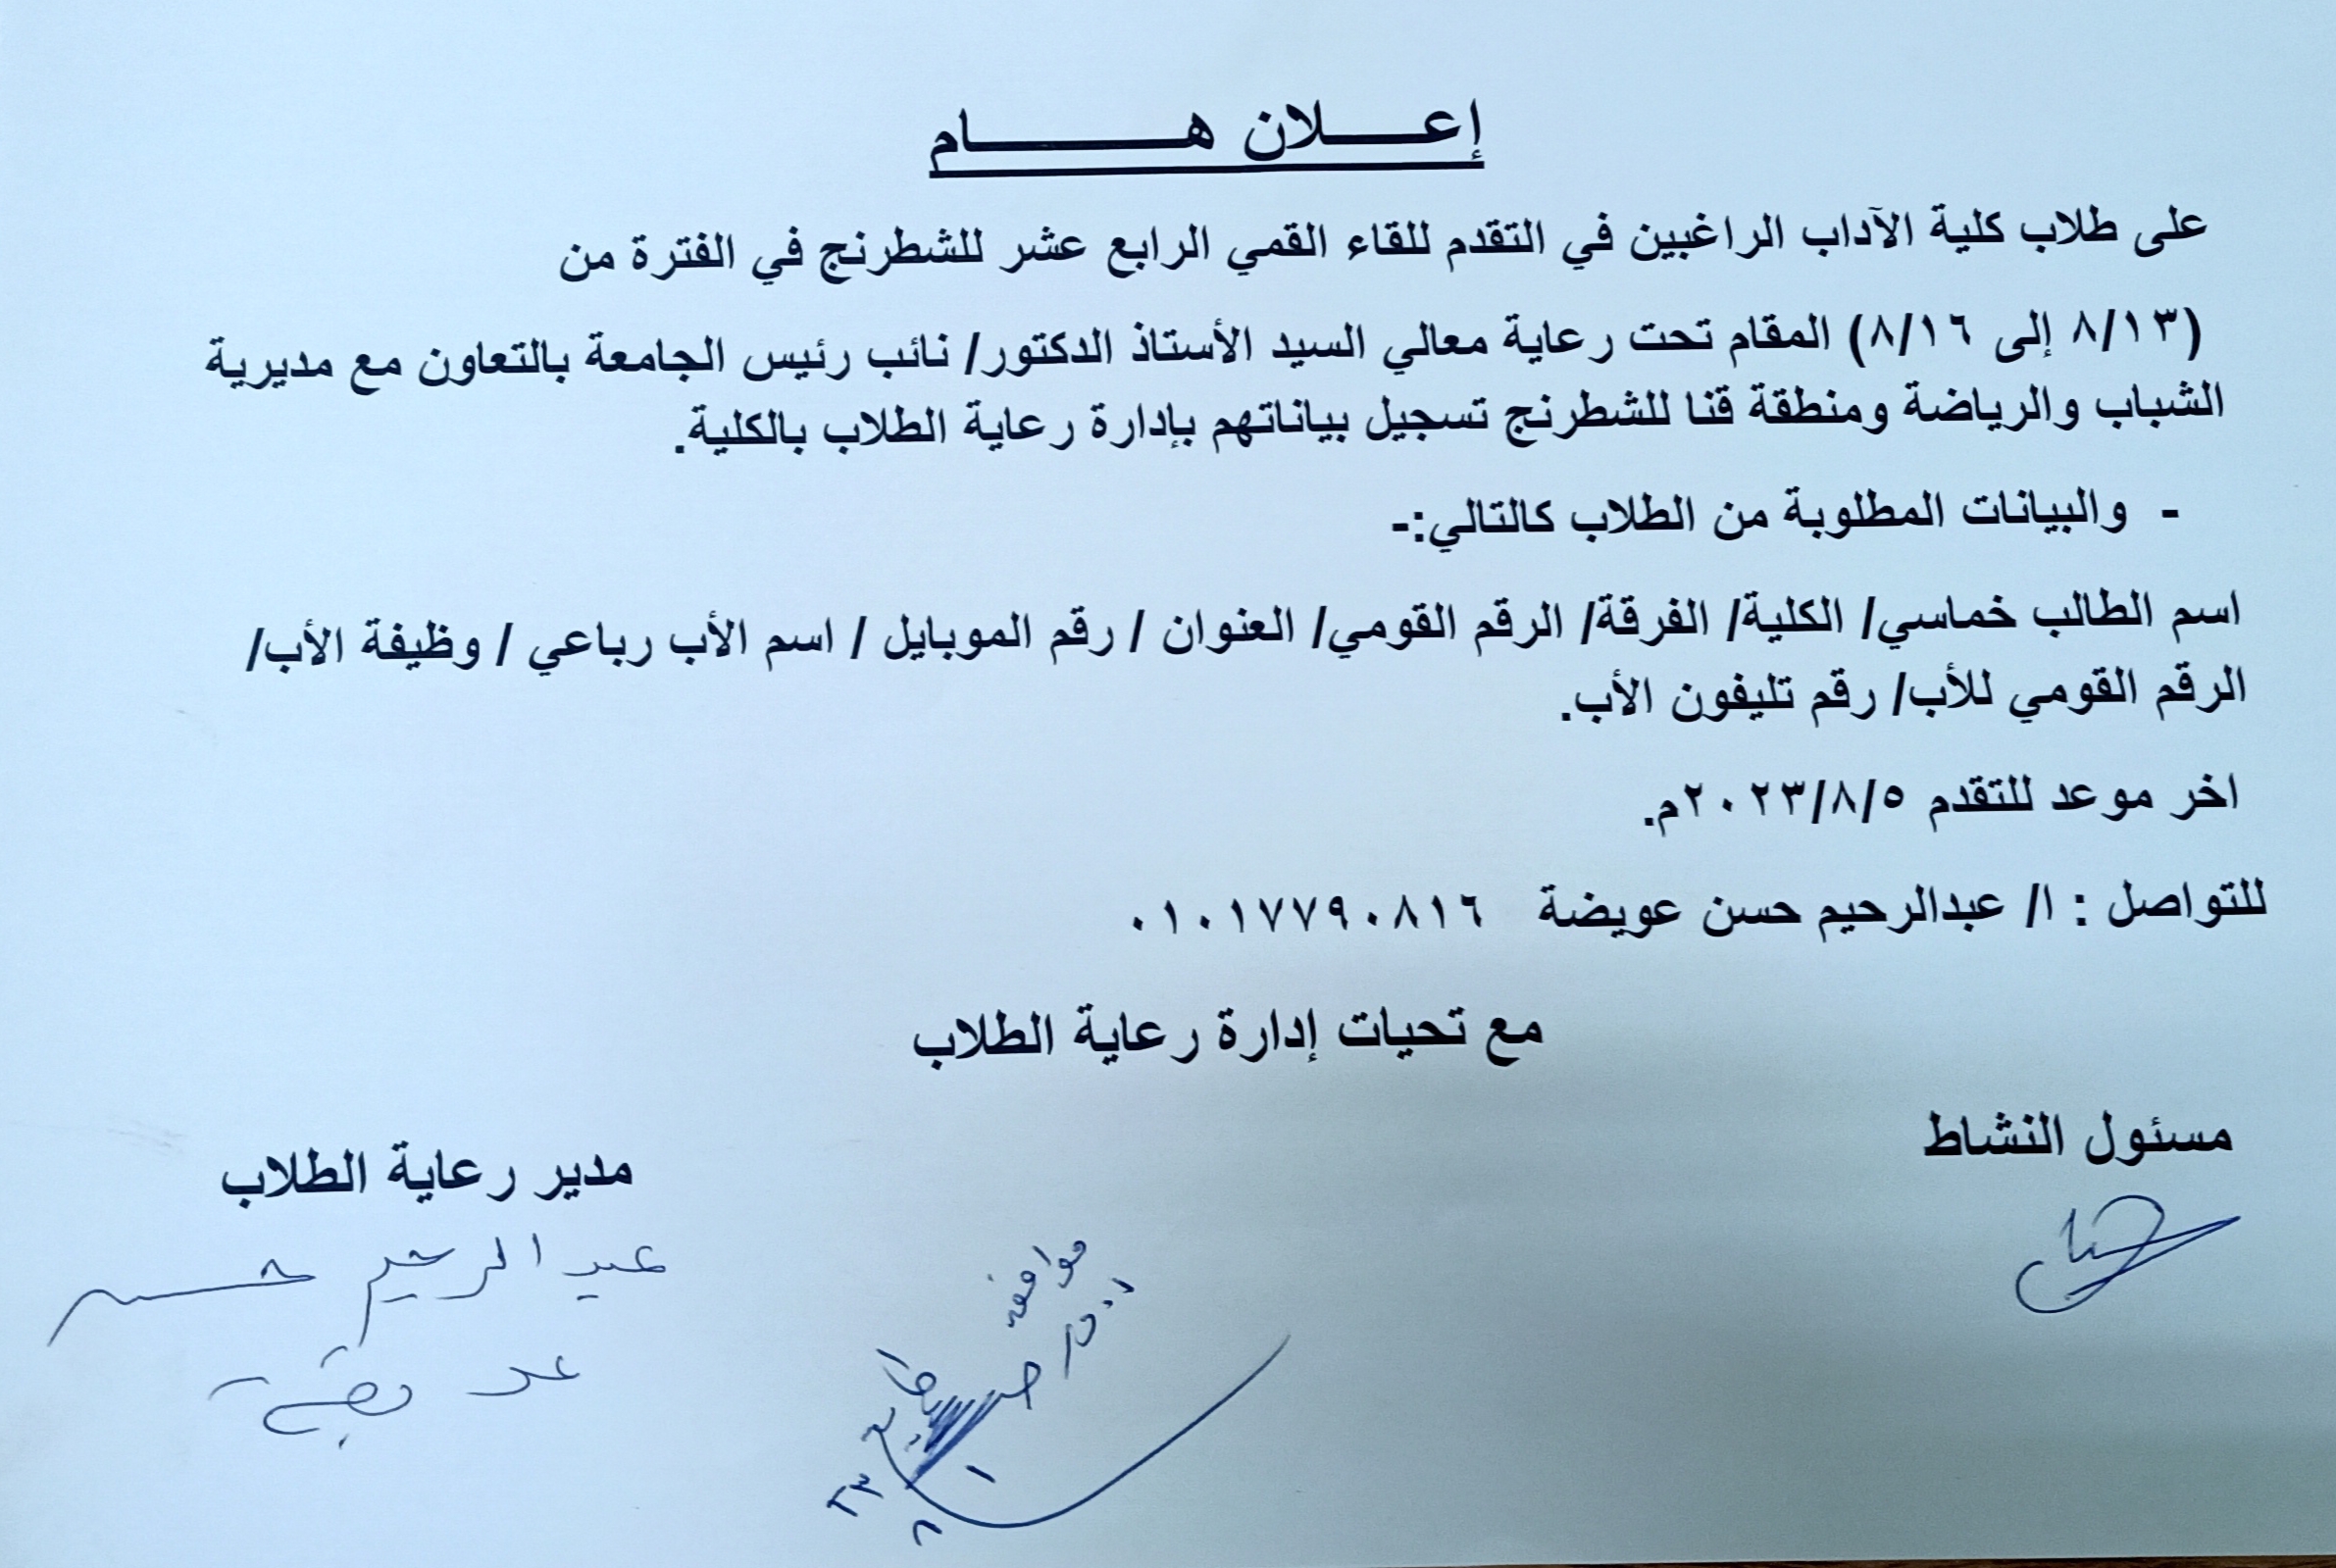 إعـــلان هــــــــام
على طلاب كلية الآداب الراغبين في التقدم للقاء القمي الرابع عشر للشطرنج في الفترة من
(٨/١٣ إلى ٨/١٦) المقام تحت رعاية معالي السيد الأستاذ الدكتور/ نائب رئيس الجامعة بالتعاون مع مديرية
الشباب والرياضة ومنطقة قنا للشطرنج تسجيل بياناتهم بإدارة رعاية الطلاب بالكلية.
- والبيانات المطلوبة من الطلاب كالتالي:-
اسم الطالب خماسي/ الكلية/ الفرقة/ الرقم القومي/ العنوان / رقم الموبايل / اسم الأب رباعي / وظيفة الأب/
الرقم القومي للأب/ رقم تليفون الأب.
اخر موعد للتقدم ٢٠٢٣/٨/٥م.
للتواصل : ا/ عبدالرحيم حسن عويضة ٠١٠١٧٧٩٠٨١٦
مع تحيات إدارة رعاية الطلاب
مسئول النشاط
مدير رعاية الطلاب
عبد الرحيم حسن
موافقه